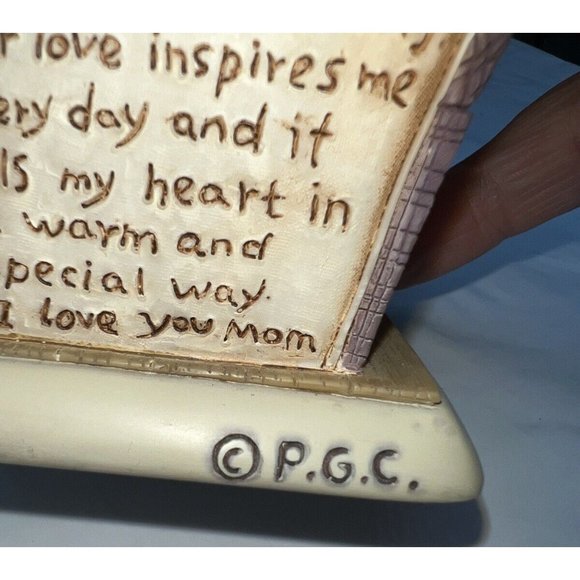 love inspires me
day and it
my heart in
warm and
way.
I love you Mom
© P.G.C.